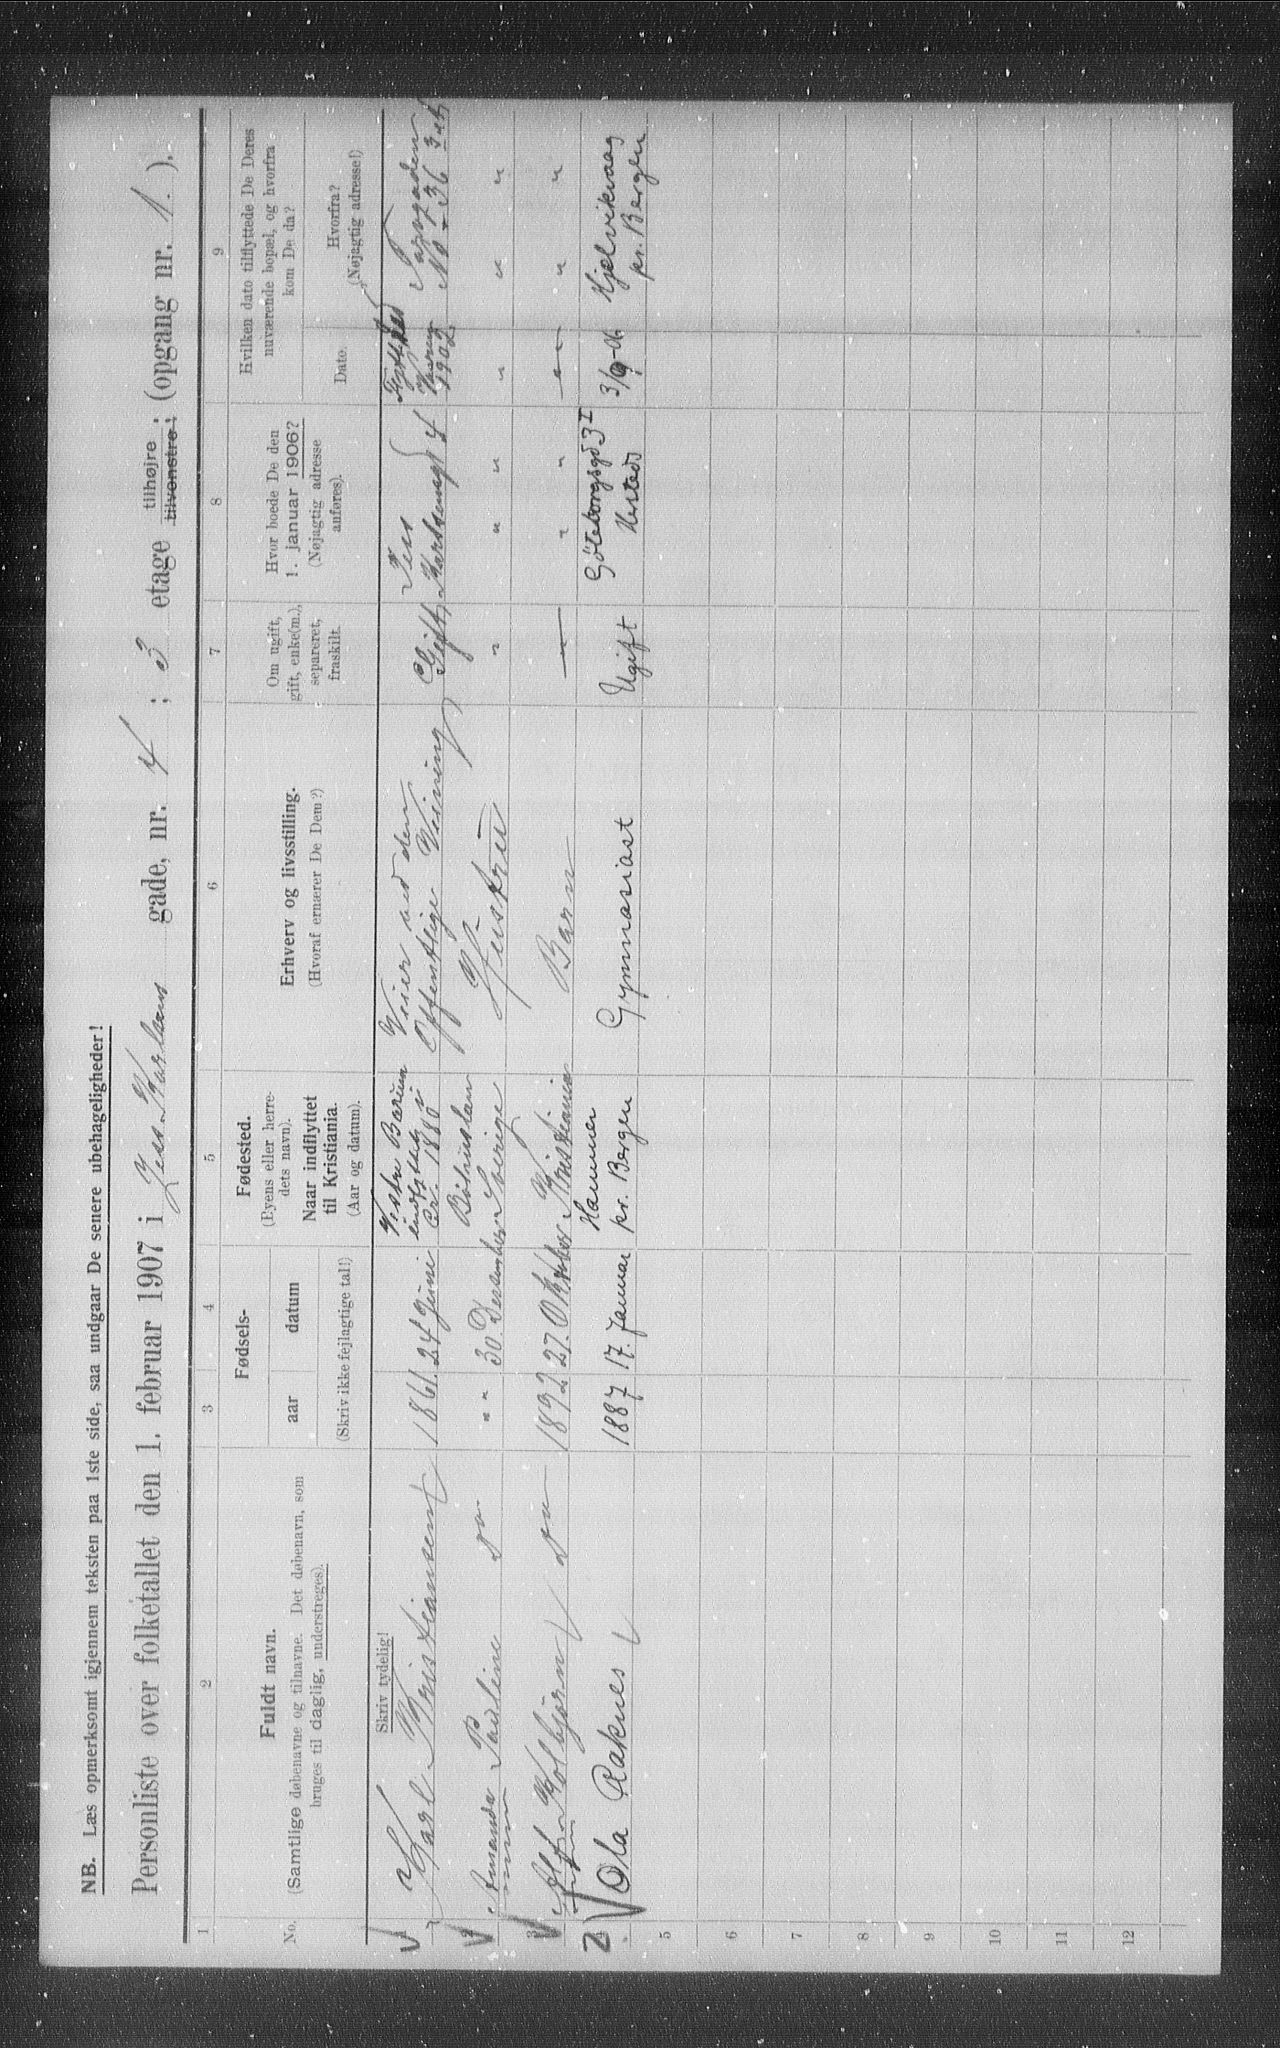 NB. Læs opmerksomt igjennem teksten paa 1ste side, saa undgaar De senere ubehageligheder!
Personliste over folketallet den 1. februar 1907 i Jess Karlsens gade, nr. 4; 3 etage tilhøjre; tilvenstre; (opgang nr. 1.).
1 2 3 4 5 6 7 8 9
No.
Fuldt navn.
(Samtlige døbenavne og tilnavne. Det døbenavn, som
bruges til daglig, understreges).
Fødsels-
aar datum
(Skriv ikke fejlagtige tal!)
Fødested.
(Byens eller herre-
dets navn).
Naar indflyttet
til Kristiania.
(Aar og datum).
Erhverv og livsstilling.
(Hvoraf ernærer De Dem?)
Om ugift,
gift, enke(m.),
separeret,
fraskilt.
Hvor boede De den
1. januar 1906?
(Nøjagtig adresse
anføres).
Hvilken dato tilflyttede De Deres
nuværende bopæl, og hvorfra
kom De da?
Dato.
Hvorfra?
(Nøjagtig adresse!)
Skriv tydelig!
1 Karl Kristiansen 1861. 24 Juni
Vestre Bærum
indflyttet i
Kr. 1880
Veier ved den
Offentlige Veining
Gift
Jess
Karlsensgd 4
1902
No 36
2 Amanda Pauline do " " 30. Desember
Sverige
Hustru
" " " " " "
3 Kolbjørn do 1892 27. Oktober Kristiania
Barn
" " " " " "
2 Ola Raknes 1887 17. Januar
Hammer
pr. Bergen
Gymnasiast
Ugift
Göteborgsgd 3 I
3/9-06
Hjelvikvaag
pr. Bergen
5
6
7
8
9
10
11
12